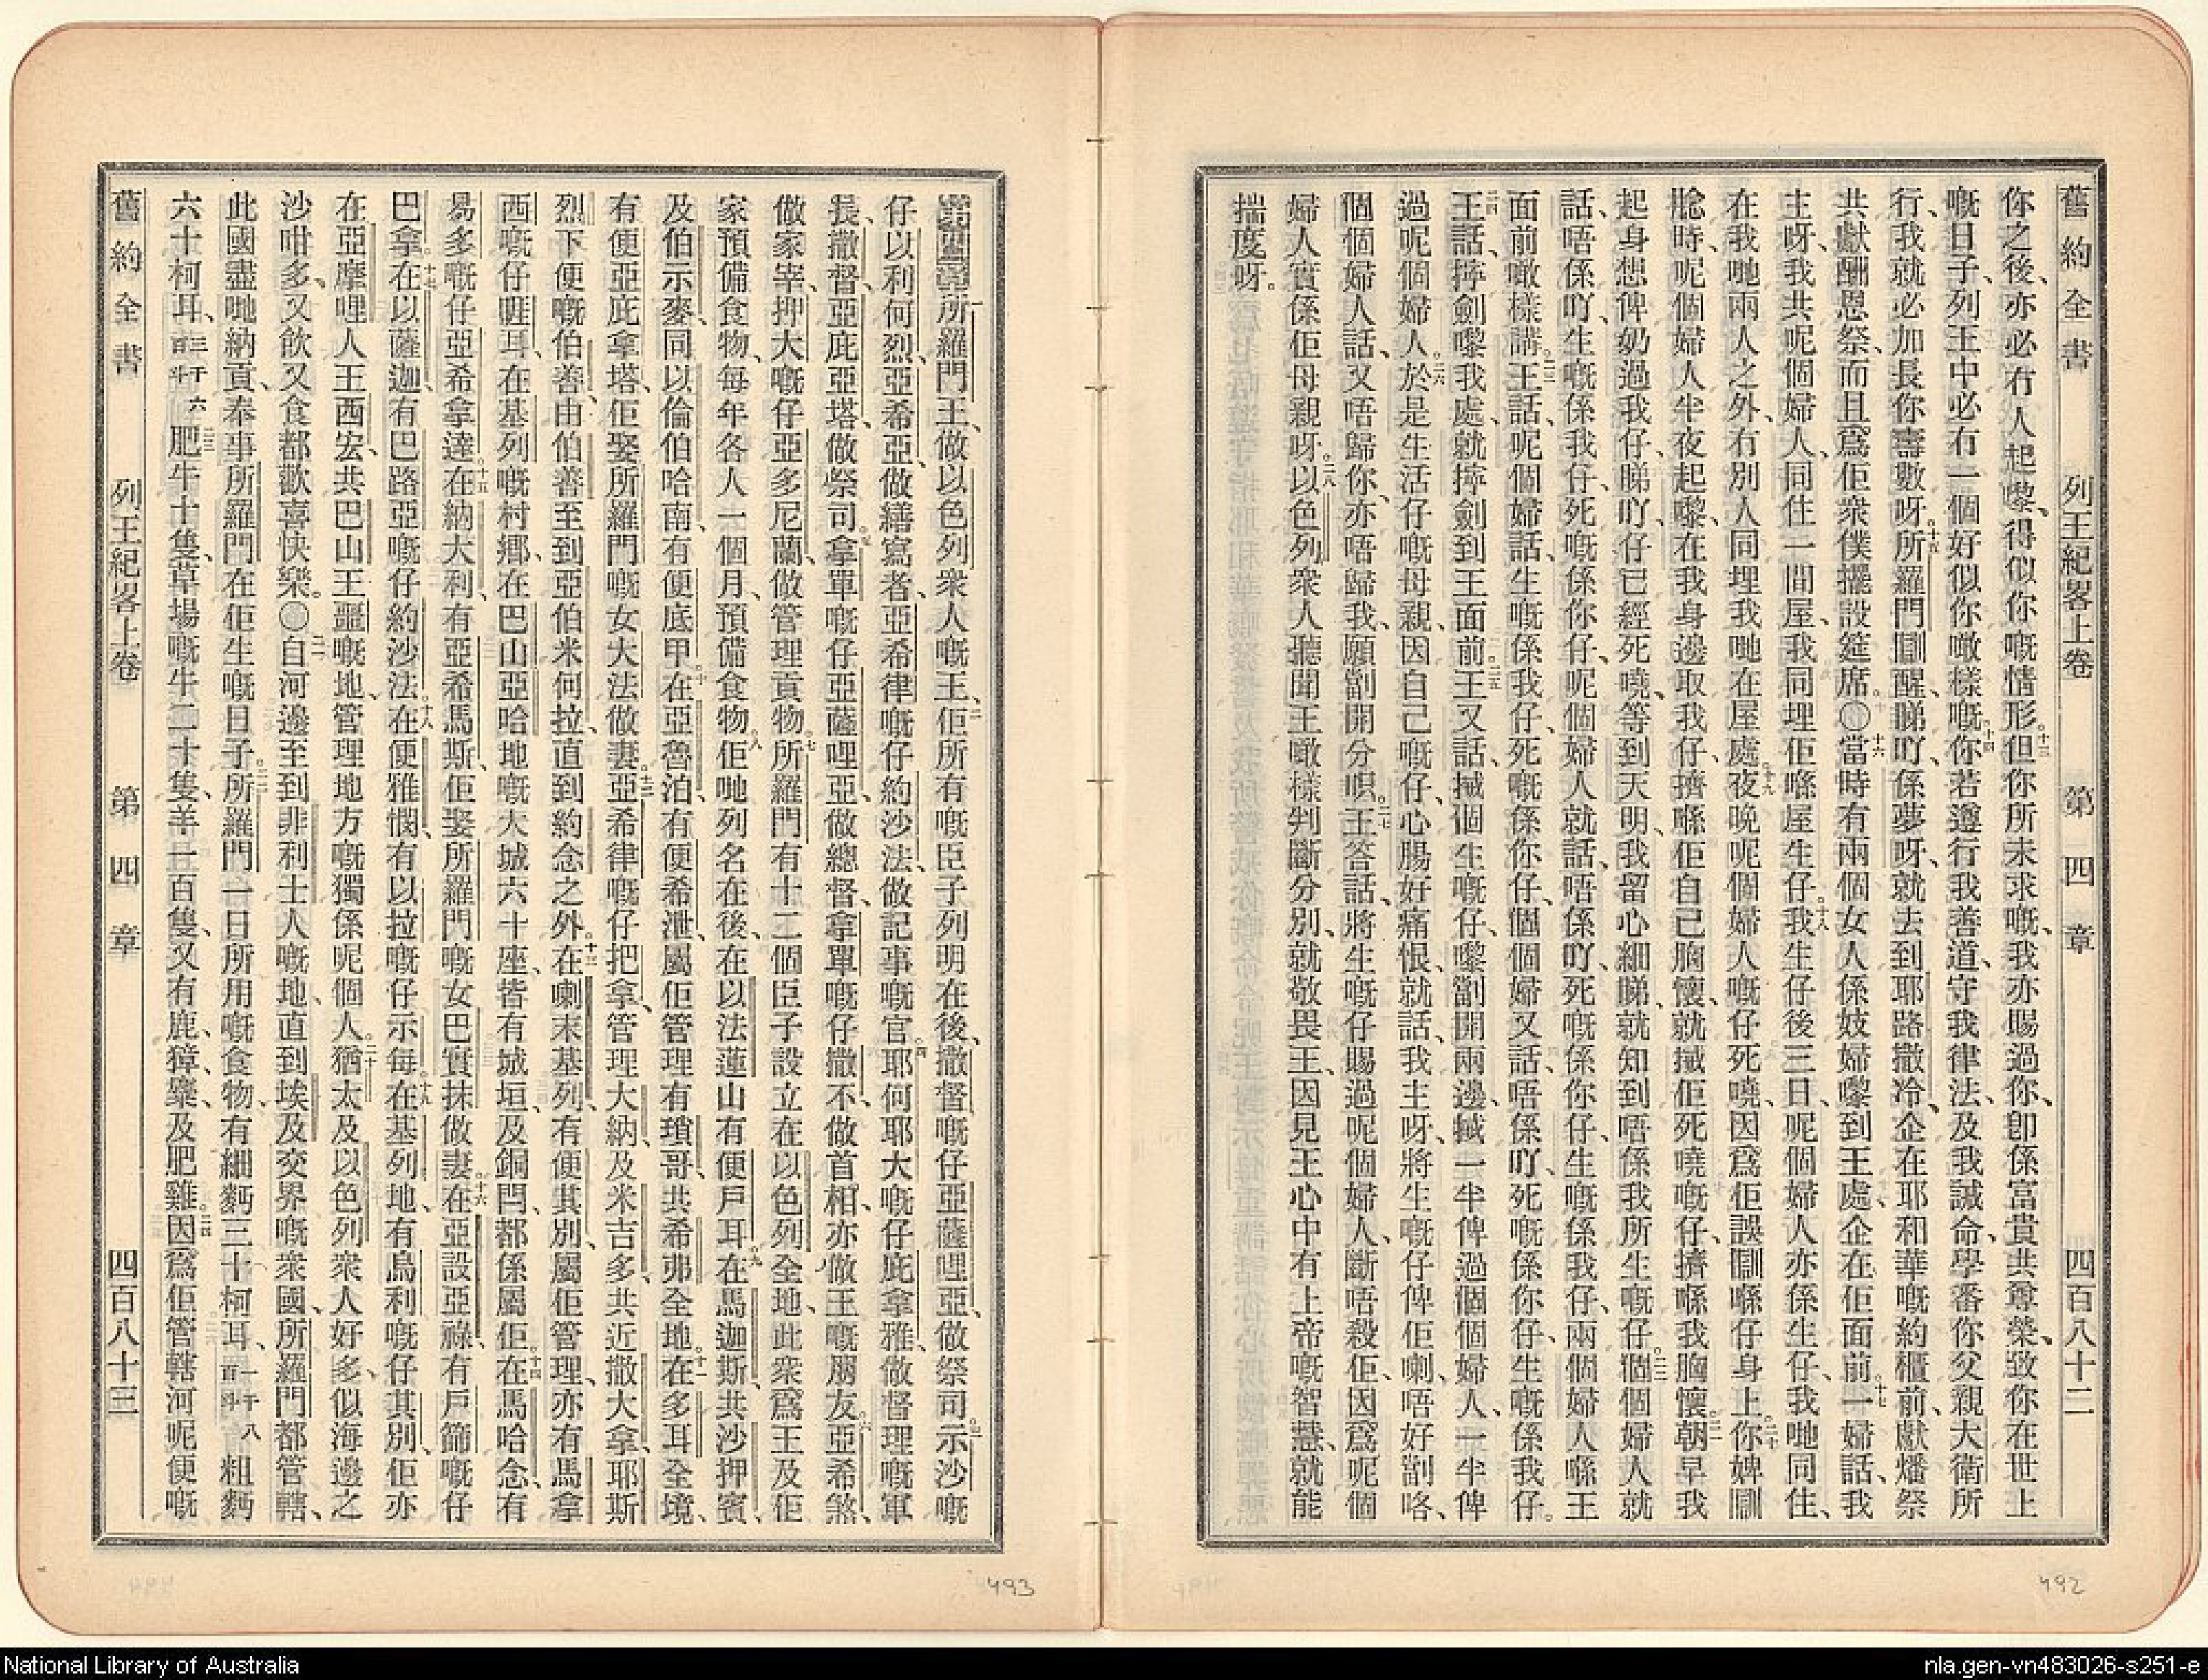 舊約全書　列王紀畧上卷　第四章　四百八十二
你之後、亦必冇人起嚟、得似你嘅情形。十三但你所未求嘅、我亦賜過你、卽係富貴共尊榮、致你在世上
嘅日子、列王中必冇一個好似你噉樣嘅、十四你若遵行我善道、守我律法、及我誡命、學番你父親大衛所
行、我就必加長你壽數呀。十五所羅門瞓醒、睇吖、係夢呀、就去到耶路撒冷、企在耶和華嘅約櫃前、獻燔祭
共獻酬恩祭、而且爲佢衆僕擺設筵席。〇十六當時有兩個女人係妓婦嚟到王處、企在佢面前。十七一婦話、我
主呀、我共呢個婦人、同住一間屋、我同埋佢喺屋生仔。十八我生仔後三日、呢個婦人亦係生仔、我哋同住、
在我哋兩人之外、冇別人同埋我哋在屋處。十九夜晚呢個婦人嘅仔死嘵、因爲佢誤瞓喺仔身上。二十你婢瞓
腍時、呢個婦人半夜起嚟、在我身邊取我仔、擠喺佢自己胸懷、就搣佢死嘵嘅仔、擠喺我胸懷。二一朝早我
起身想俾奶過我仔、睇吖、仔已經死嘵、等到天明、我留心細睇、就知到唔係我所生嘅仔。二二個個婦人就
話、唔係吖、生嘅係我仔、死嘅係你仔、呢個婦人就話、唔係吖、死嘅係你仔、生嘅係我仔、兩個婦人喺王
面前噉樣講。二三王話、呢個婦話、生嘅係我仔、死嘅係你仔、個個婦又話、唔係吖、死嘅係你仔、生嘅係我仔。
二四王話、擰劍嚟我處、就擰劍到王面前。二五王又話、搣個生嘅仔、嚟劏開兩邊、搣一半俾過個個婦人、一半俾
過呢個婦人。二六於是生活仔嘅母親、因自己嘅仔、心腸好痛恨、就話、我主呀、將生嘅仔俾佢喇、唔好劏咯、
個個婦人話、又唔歸你、亦唔歸我、願劏開分唄。二七王答話、將生嘅仔賜過呢個婦人、斷唔殺佢、因爲呢個
婦人實係佢母親呀。二八以色列衆人聽聞王噉樣判斷分別、就敬畏王、因見王心中有上帝嘅智慧、就能
揣度呀。
第四章一所羅門王、做以色列衆人嘅王、二佢所有嘅臣子列明在後、撒督嘅仔亞薩哩亞、做祭司。三示沙嘅
仔以利何烈、亞希亞、做繕寫者、亞希律嘅仔約沙法、做記事嘅官。四耶何耶大嘅仔庇拿雅、做督理嘅軍
長、撒督、亞庇亞塔、做祭司。五拿單嘅仔亞薩哩亞、做總督、拿單嘅仔撒不、做首相、亦做王嘅朋友。六亞希煞
做家宰、押大嘅仔亞多尼蘭、做管理貢物。七所羅門有十二個臣子設立在以色列全地、此衆爲王及佢
家預備食物、每年各人一個月、預備食物。八佢哋列名在後、在以法蓮山有便戶耳。九在馬迦斯、共沙押賓、
及伯示麥、同以倫伯哈南、有便底甲。十在亞魯泊、有便希泄、屬佢管理有瑣哥、共希弗全地。十一在多耳全境、
有便亞庇拿塔、佢娶所羅門嘅女大法做妻。十二亞希律嘅仔把拿、管理大納、及米吉多、共近撒大拿、耶斯
烈下便嘅伯善、由伯善至到亞伯米何拉、直到約念之外。十三在喇末基列、有便其別、屬佢管理、亦有馬拿
西嘅仔睚耳、在基列嘅村鄉、在巴山亞哈地嘅大城六十座、皆有城垣、及銅閂、都係屬佢。十四在馬哈念、有
易多嘅仔亞希拿達。十五在納大利、有亞希馬斯、佢娶所羅門嘅女巴實抹做妻。十六在亞設亞祿、有戶篩嘅仔
巴拿。十七在以薩迦、有巴路亞嘅仔約沙法。十八在便雅憫、有以拉嘅仔示每。十九在基列地、有烏利嘅仔其別、佢亦
在亞摩哩人王西宏、共巴山王噩嘅地、管理地方嘅獨係呢個人。二十猶太及以色列衆人好多、似海邊之
沙咁多、又飲又食都歡喜快樂。〇二一自河邊至到非利士人嘅地、直到埃及交界嘅衆國、所羅門都管轄、
此國盡哋納貢、奉事所羅門在佢生嘅日子。二二所羅門一日所用嘅食物、有細麪三十柯耳、一千八百斗粗麪
六十柯耳、三千六百斗二三肥牛十隻、草場嘅牛二十隻、羊一百隻、又有鹿、獐、麋、及肥雞。二四因爲佢管轄河呢便嘅
舊約全書　列王紀畧上卷　第四章　四百八十三
492
493
National Library of Australia
nla.gen-vn483026-s251-e